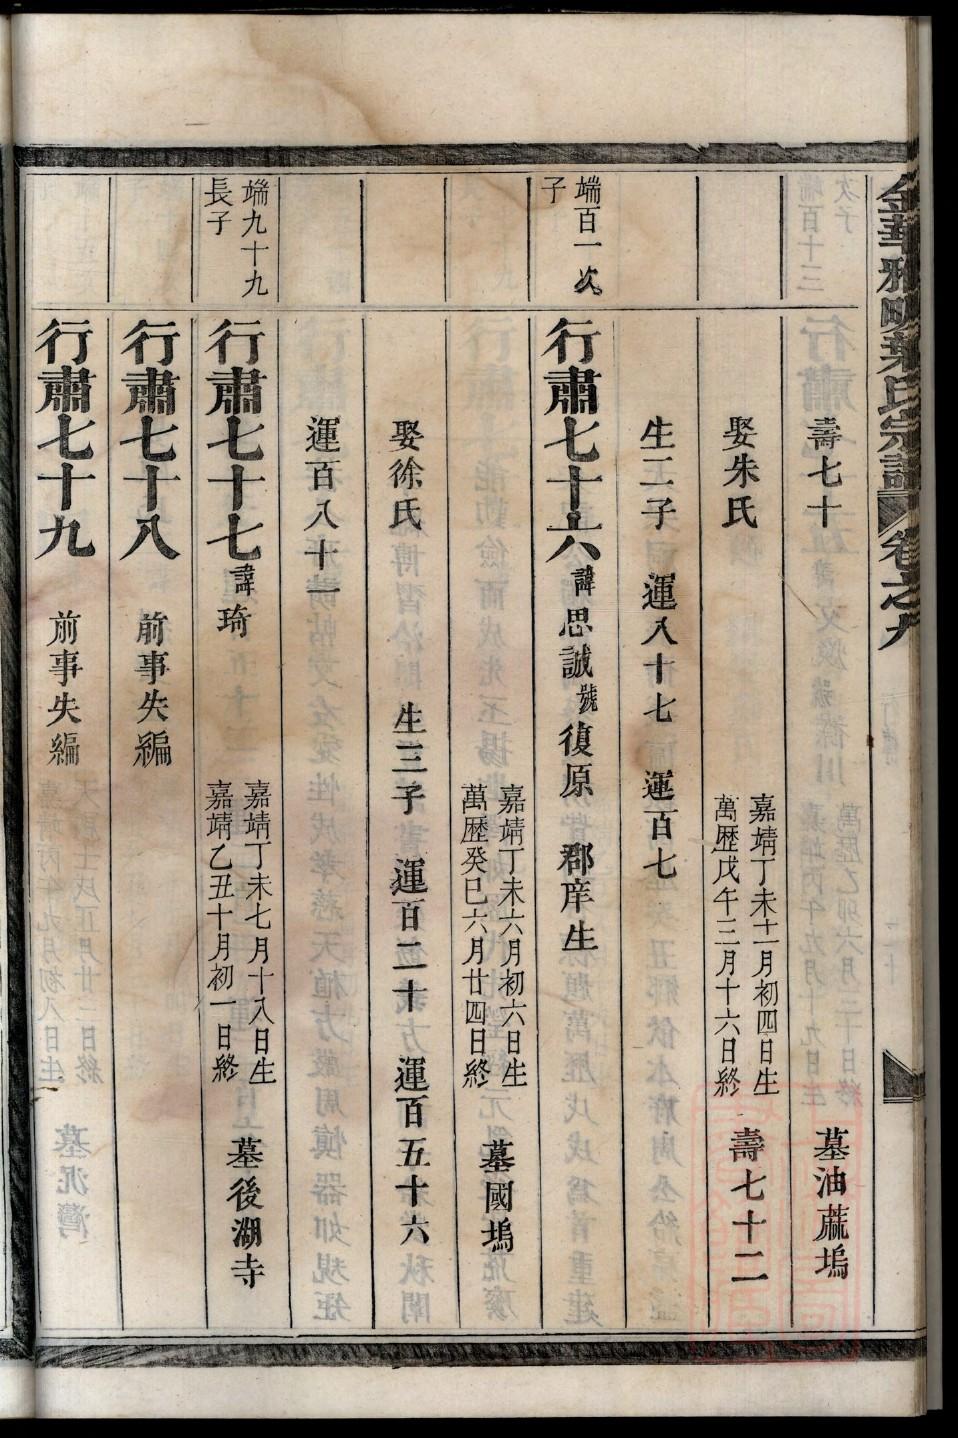 金華雅畈葉氏宗譜 卷之九
壽七十 墓油蔴塢
娶朱氏 嘉靖丁未十一月初四日生
萬歷戊午三月十六日終 壽七十二
生二子 運八十七 運百七
端百一次
子
行肅七十六 諱思誠 號復原 郡庠生
嘉靖丁未六月初六日生
萬歷癸巳六月廿四日終 墓國塢
娶徐氏 生三子 運百二十 運百五十六
運百八十一
端九十九
長子
行肅七十七 諱琦 嘉靖丁未七月十八日生
嘉靖乙丑十月初一日終 墓後湖寺
行肅七十八 前事失編
行肅七十九 前事失編